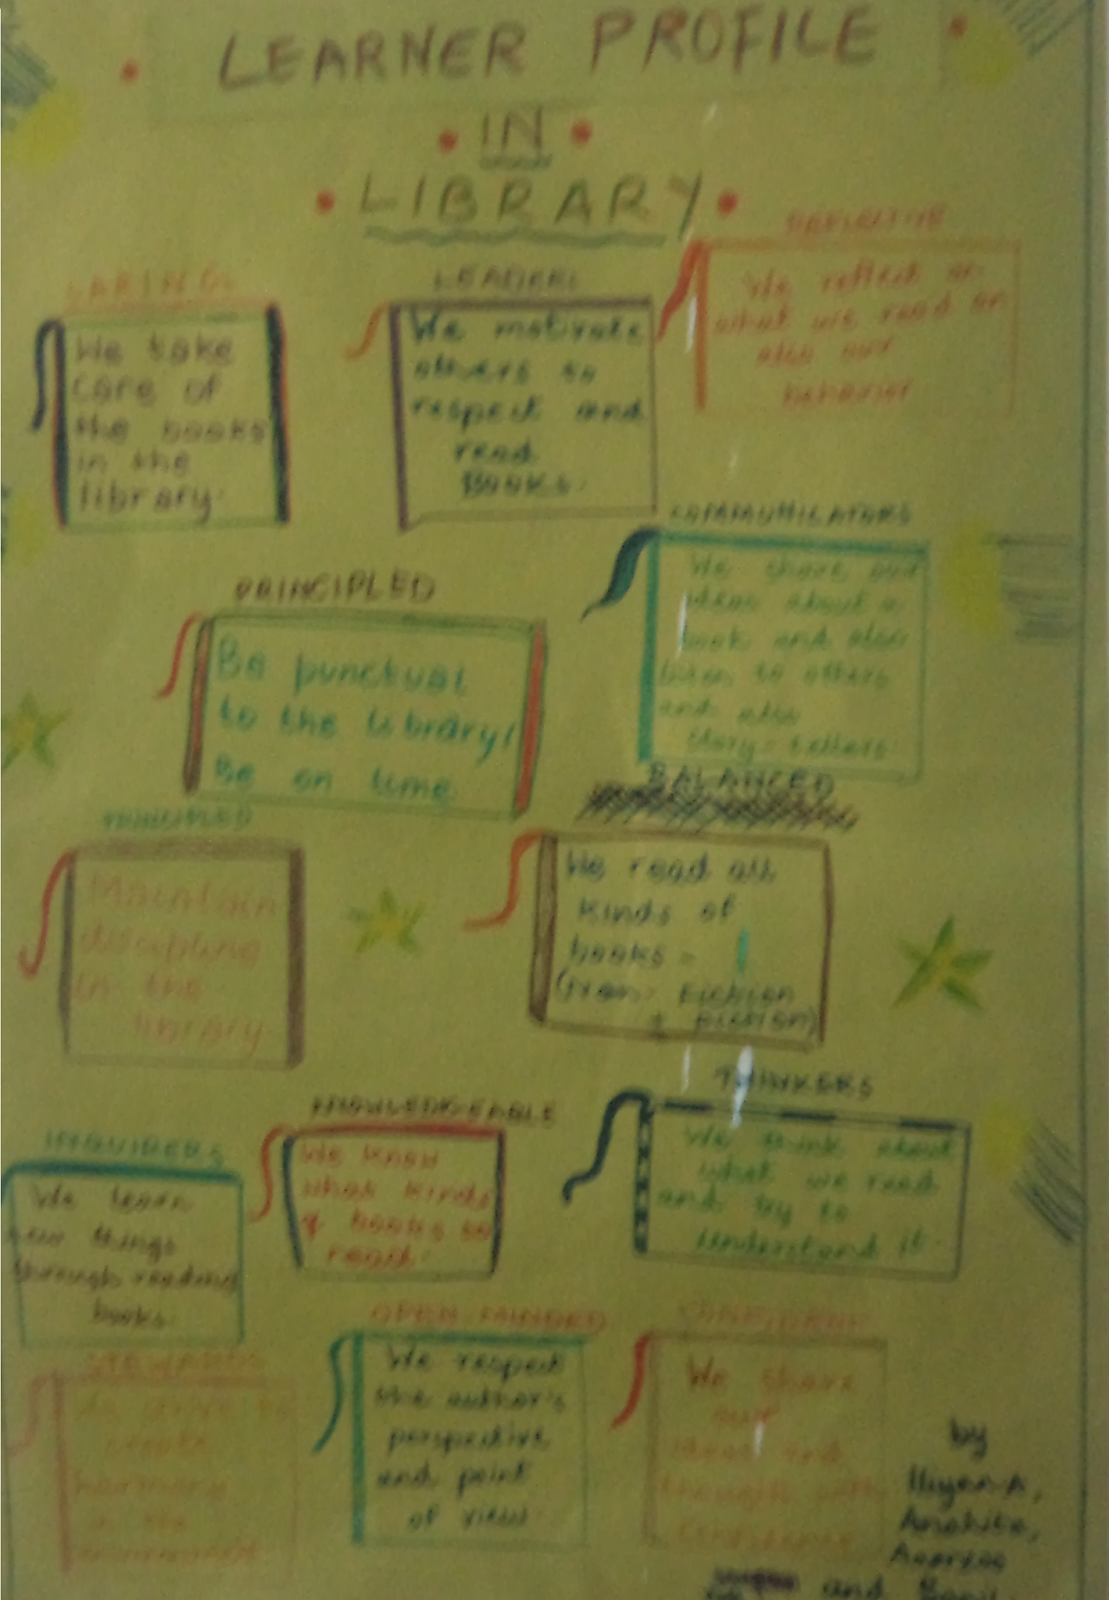 LEARNER PROFILE
IN
LIBRARY
CARING
We take
care of
the books
in the
library.
LEADERS
We motivate
others to
respect and
read
Books.
REFLECTIVE
We reflect on
what we read an
also our
behavior
PRINCIPLED
Be punctual
to the library!
Be on time
COMMUNICATORS
We share our
ideas about a
book and also
listen to others
and also
story-tellers.
PRINCIPLED
Maintain
discipline
in the
library.
BALANCED
We read all
kinds of
books -
(non-fiction
+ fiction)
INQUIRERS
We learn
new things
through reading
books.
KNOWLEDGEABLE
We know
what kinds
of books to
read.
THINKERS
We think about
what we read
and try to
understand it.
STEWARDS
We strive to
create
harmony
in the
OPEN-MINDED
We respect
the author's
perspective
and point
of view.
CONFIDENT
We share
our
ideas and
thoughts with
confidence
by
Anahita,
and